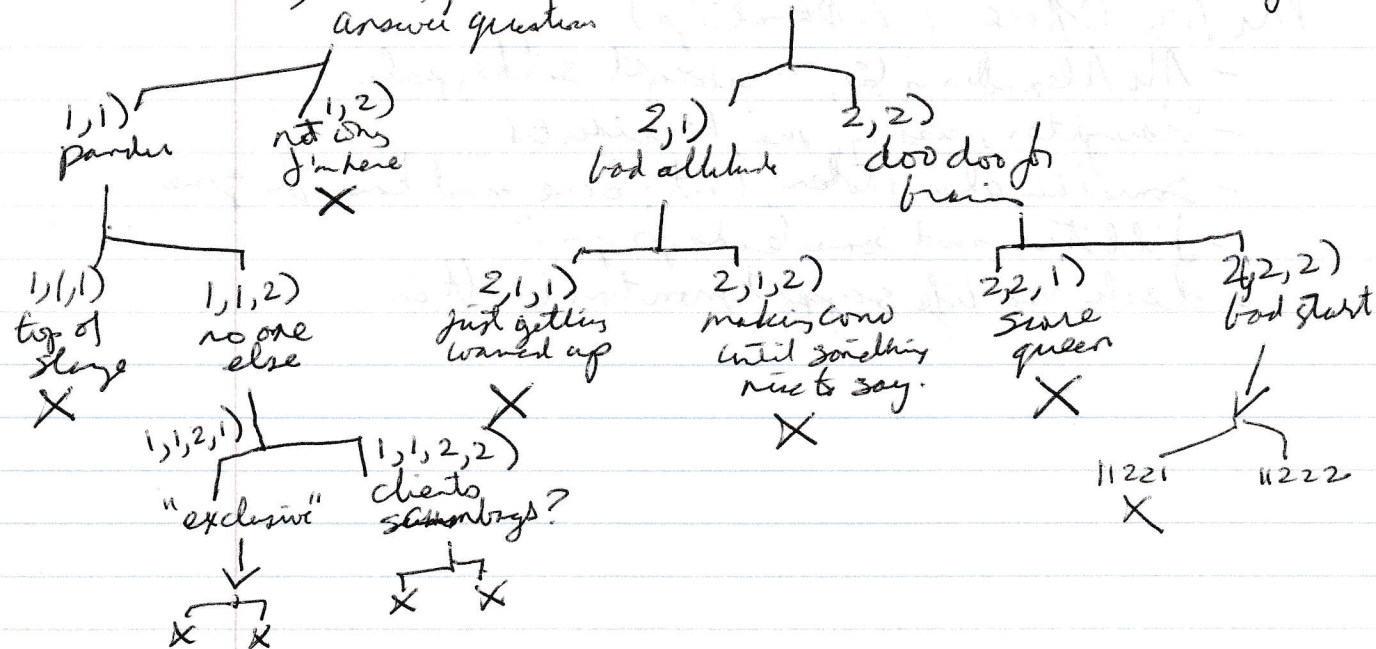 answer question
1,1)
pander
1,2)
not why
I'm here
X
2,1)
bad attitude
2,2)
doo doo for
brain
1,1,1)
top of
X
1,1,2)
no one
else
2,1,1)
just getting
warmed up
X
2,1,2)
making conv
until something
nice to say.
X
2,2,1)
queen
X
2,2,2)
bad start
1,1,2,1)
"exclusive"
1,1,2,2)
clients
scumbags?
11221
X
11222
X X
X X